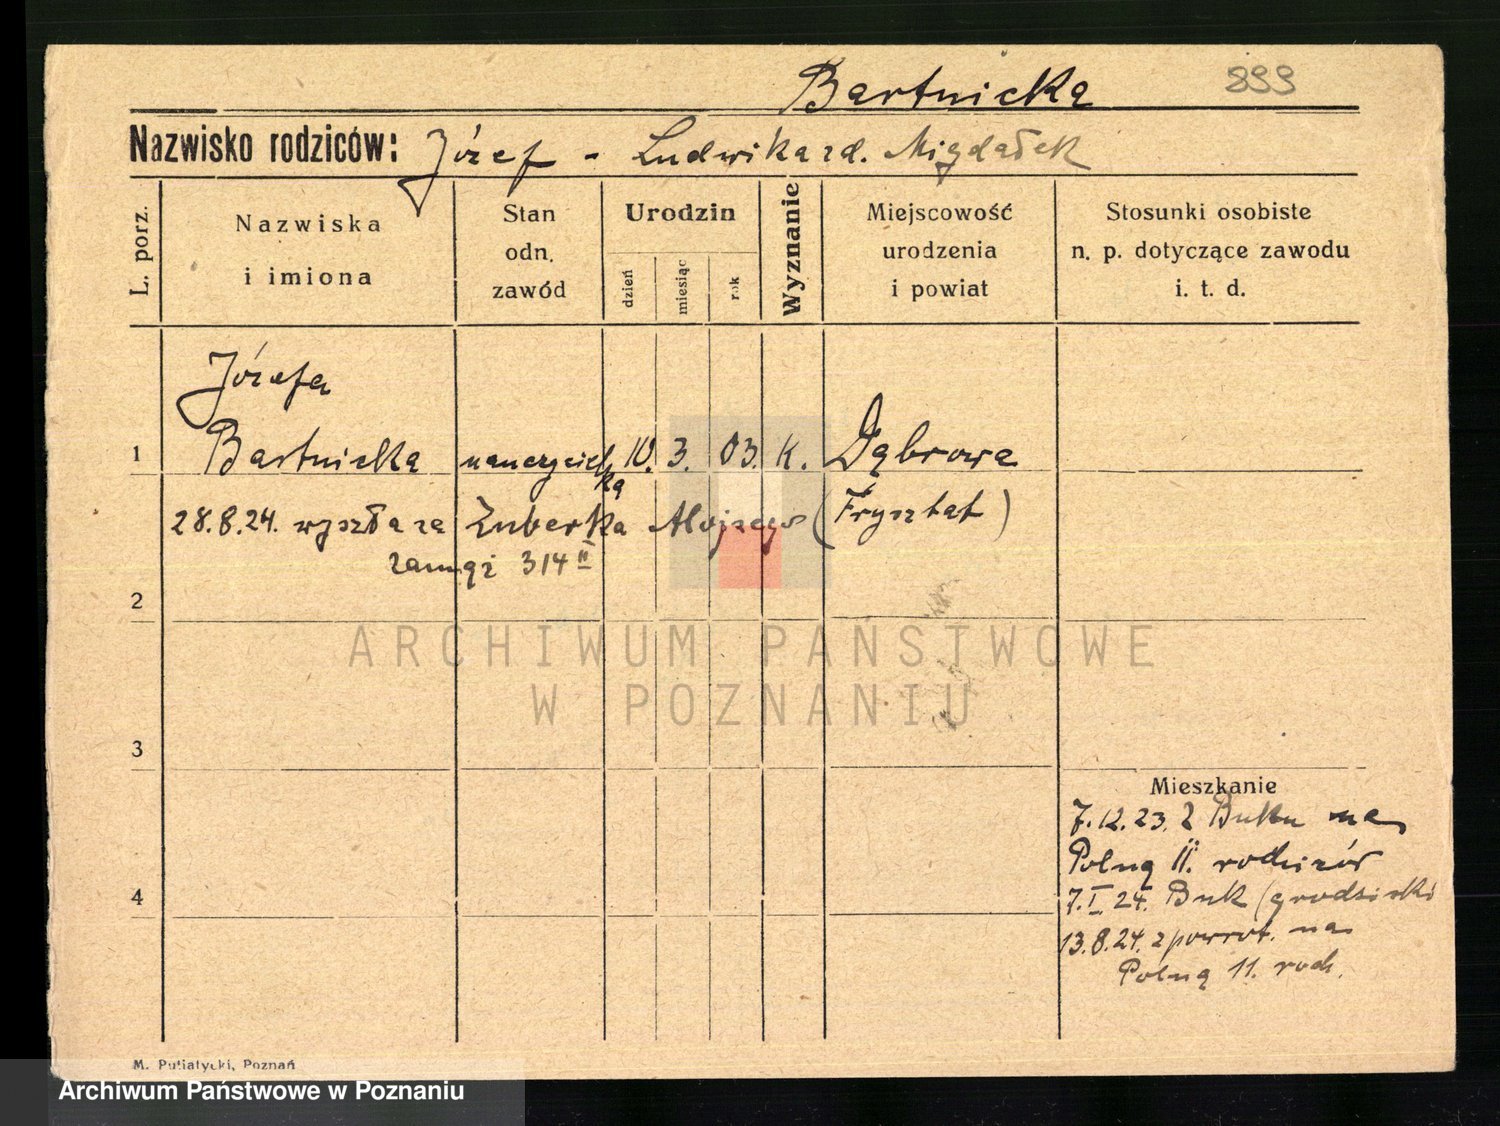 Bartnicka 899
Nazwisko rodziców: Józef - Ludwika zd. Migdałek
L. porz.
Nazwiska
i imiona
Stan
odn.
zawód
Urodzin
dzień
miesiąc
rok
Wyznanie
Miejscowość
urodzenia
i powiat
Stosunki osobiste
n. p. dotyczące zawodu
i. t. d.
Józefa
1 Bartnicka nauczyciel 3. 03. K. Dąbrowa
ka
28.8.24. wyszła za Zuberka Alojzego (Frysztat)
zamąż 314 II
2
3
4
Mieszkanie
7.12.23. z Buku na
Polną 11. rodziców
7.I.24. Buk (grodziski
13.8.24. z powrot. na
Polną 11. rodz.
M. Putiatycki, Poznań
ARCHIWUM PAŃSTWOWE
W POZNANIU
Archiwum Państwowe w Poznaniu